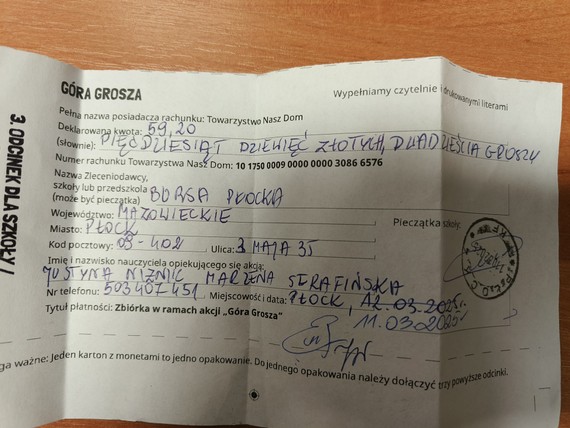 3. ODCINEK DLA SZKOŁY /
GÓRA GROSZA
Wypełniamy czytelnie i drukowanymi literami
Pełna nazwa posiadacza rachunku: Towarzystwo Nasz Dom
Deklarowana kwota: 59,20
(słownie): PIĘĆDZIESIĄT DZIEWIĘĆ ZŁOTYCH, DWADZIEŚCIA GROSZY
Numer rachunku Towarzystwa Nasz Dom: 10 1750 0009 0000 0000 3086 6576
Nazwa Zleceniodawcy,
szkoły lub przedszkola
(może być pieczątka) BURSA PŁOCKA
Województwo: MAZOWIECKIE
Pieczątka szkoły:
Miasto: PŁOCK
Kod pocztowy: 09-402 Ulica: 3 MAJA 35
Imię i nazwisko nauczyciela opiekującego się akcją:
JUSTYNA NIZNIC MARZENA SERAFIŃSKA
Nr telefonu: 503407451 Miejscowość i data: PŁOCK, 12.03.2025r.
11.03.2025r
Tytuł płatności: Zbiórka w ramach akcji „Góra Grosza”
ga ważne: Jeden karton z monetami to jedno opakowanie. Do jednego opakowania należy dołączyć trzy powyższe odcinki.